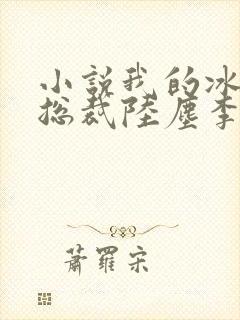 小說我的冰
總裁陸塵李
蕭羅宋